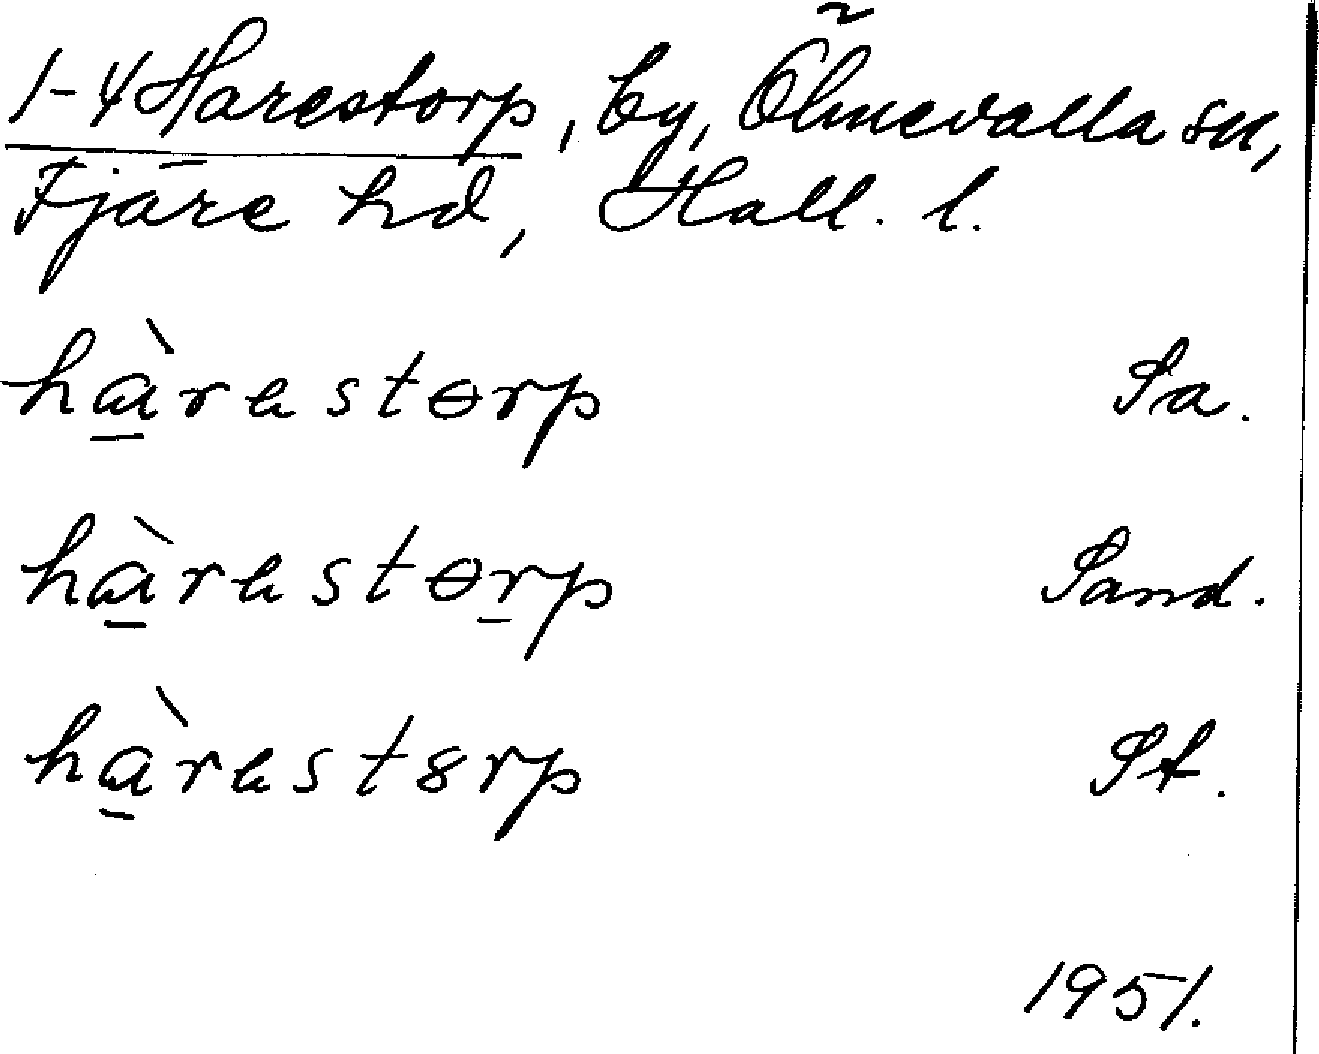 1-4 Harestorp, by, Ölmevalla sn,
Fjäre hd, Hall. l.
hàrestorp Sa.
hàrestorp Sand.
hàrestorp St.
1951.